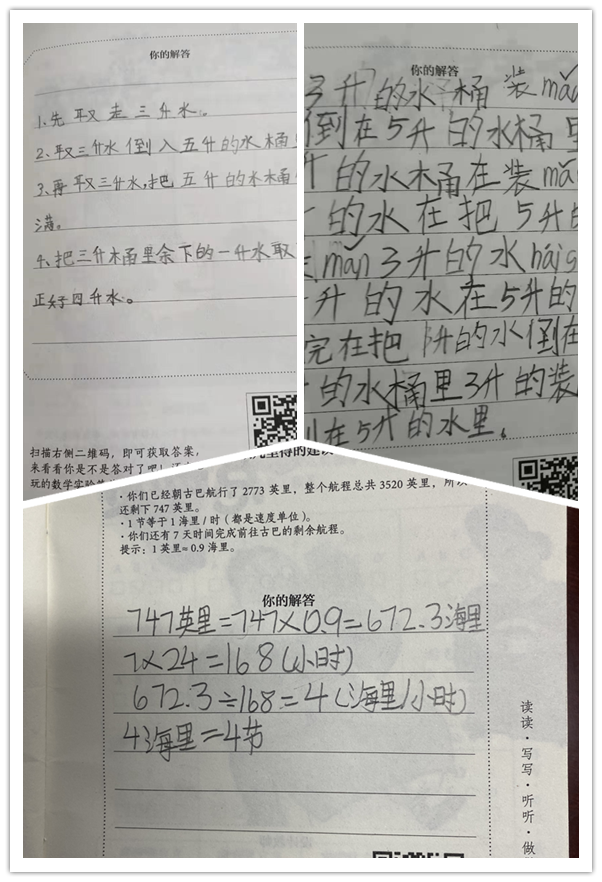 你的解答
1、先取走三升水。
2、取三升水倒入五升的水桶
3、再取三升水,把五升的水桶
满。
4、把三升桶里余下的一升水取
正好四升水。
扫描右侧二维码,即可获取答案,
来看看你是不是答对了吧!
玩的数学实验
你的解答
3升的水桶装mǎn
倒在5升的水桶里
升的水桶在装mǎn
的水在把5升的
mǎn3升的水háiS
升的水在5升的
完在把1升的水倒在
的水桶里3升的装
在5升的水里。
得的建议
·你们已经朝古巴航行了 2773 英里,整个航程总共 3520 英里,所以
还剩下 747 英里。
·1 节等于 1 海里 / 时(都是速度单位)。
·你们还有 7 天时间完成前往古巴的剩余航程。
提示:1 英里≈0.9 海里。
你的解答
747英里=747×0.9=672.3海里
7×24=168(小时)
672.3÷168=4(海里/小时)
4海里=4节
读读·写写·听听·做